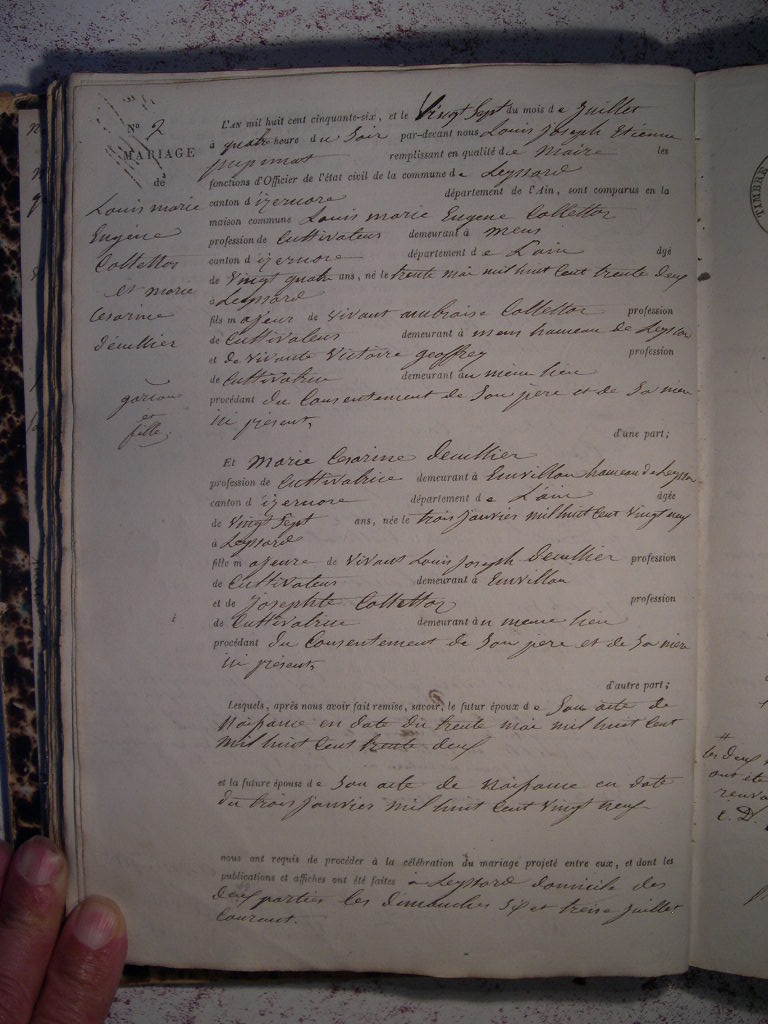 N° 2
MARIAGE
de
Louis marie
Eugène
Collettor
et marie
Cesarine
garcon
et
fille
L'AN mil huit cent cinquante-six, et le Vingt Sept du mois de Juillet
à quatre heure du Soir par-devant nous Louis Joseph Etienne
remplissant en qualité de Maire les
fonctions d'Officier de l'état civil de la commune de Leyssard
canton d'izernore département de l'Ain, sont comparus en la
maison commune Louis marie Eugene Collettor
profession de Cultivateur demeurant à mens
canton d'izernore département de L'ain âgé
de Vingt quatre ans, né le trente mai mil huit Cent trente deux
à Leyssard
fils majeur de vivant ambroise Collettor profession
de Cultivateur demeurant à mens hameau de Leyssar
et de vivante Victoire geoffrey profession
de Cultivatrice demeurant au même lieu
procédant du Consentement de Son père et de Sa mère
ici présent,
d'une part;
Et Marie Cesarine Decullier
profession de Cultivatrice demeurant à Emvillon hameau de Leyssar
canton d'izernore département de L'ain âgée
de Vingt Sept ans, née le trois Janvier mil huit Cent vingt neuf
à Leyssard
fille majeure de Vivant Louis Joseph Decullier profession
de Cultivateur demeurant à Emvillon
et de Josephte Collettor profession
de Cultivatrice demeurant au meme lieu
procédant du Consentement de Son père et de Sa mère
ici présent,
d'autre part;
Lesquels, après nous avoir fait remise, savoir, le futur époux de Son acte de
Naissance en date du trente mai mil huit Cent
mil huit Cent trente deux
et la future épouse de Son acte de Naissance en date
du trois Janvier mil huit Cent vingt neuf
nous ont requis de procéder à la célébration du mariage projeté entre eux, et dont les
publications et affiches ont été faites à Leyssard domicile des
deux parties les dimanches Six et treize Juillet
Courant.
les deux
ont été
TIMBRE